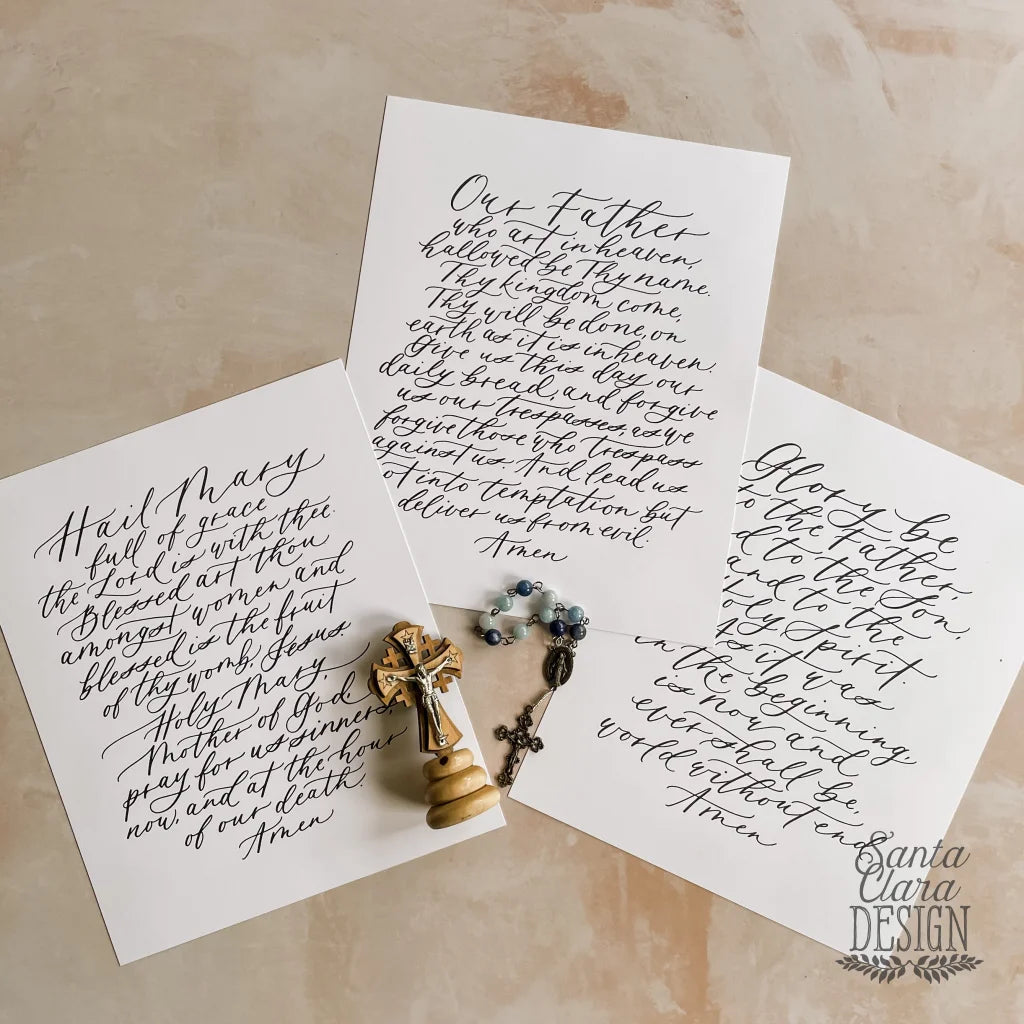 Our Father
who art in heaven,
hallowed be Thy name.
Thy kingdom come,
Thy will be done, on
earth as it is in heaven.
Give us this day our
daily bread, and forgive
us our trespasses, as we
forgive those who trespass
against us. And lead us
ot into temptation but
deliver us from evil.
Amen
Hail Mary
full of grace
the Lord is with thee.
Blessed art thou
amongst women and
blessed is the fruit
of thy womb, Jesus.
Holy Mary,
Mother of God
pray for us sinners,
now, and at the hour
of our death.
Amen
Glory be
to the Father,
d to the Son,
and to the
oly Spirit.
As it was
n the beginning,
is now and
ever shall be,
world without end
Amen
Santa
Clara
DESIGN